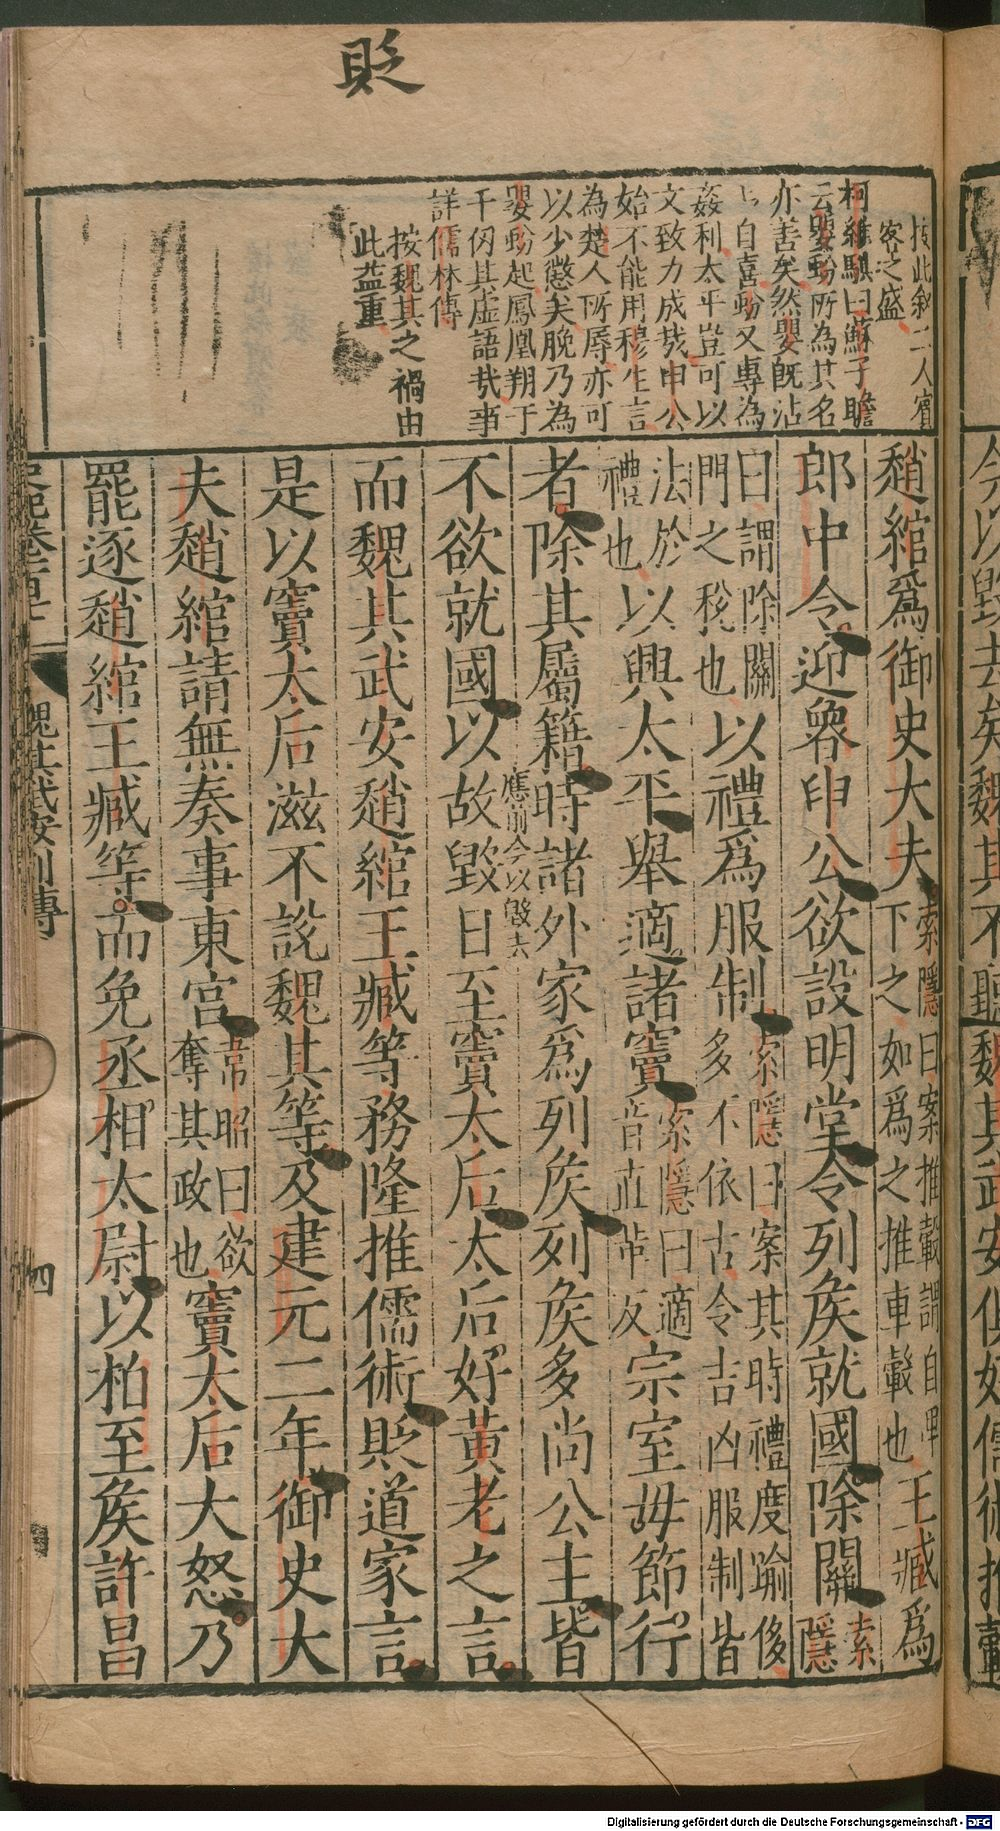 貶
按此敘二人賓
客之盛
柯維騏曰蘇子瞻
云嬰蚡所為其名
亦善矣然嬰既沾
自喜蚡又專為
姦利太平豈可以
文致力成哉申公
始不能用穆生言
為楚人所辱亦可
以少懲矣脫乃為
嬰蚡起鳳凰翔于
千仞其虛語哉事
詳儒林傳
按魏其之禍由
此益重
趙綰爲御史大夫索隱曰案推轂謂自卑下之如爲之推車轂也王臧爲
郎中令迎魯申公欲設明堂令列矦就國除關索隱
曰謂除關門之稅也以禮爲服制索隱曰案其時禮度踰侈多不依古令吉凶服制皆
法於禮也以興太平舉適諸竇索隱曰適音直革反宗室毋節行
者除其屬籍時諸外家爲列矦列矦多尚公主皆
不欲就國以故毀日至竇太后太后好黃老之言
應前今以毀去
而魏其武安趙綰王臧等務隆推儒術貶道家言
是以竇太后滋不說魏其等及建元二年御史大
夫趙綰請無奏事東宮韋昭曰欲奪其政也竇太后大怒乃
罷逐趙綰王臧等而免丞相太尉以柏至矦許昌
魏其武安列傳
四
Digitalisierung gefördert durch die Deutsche Forschungsgemeinschaft - DFG